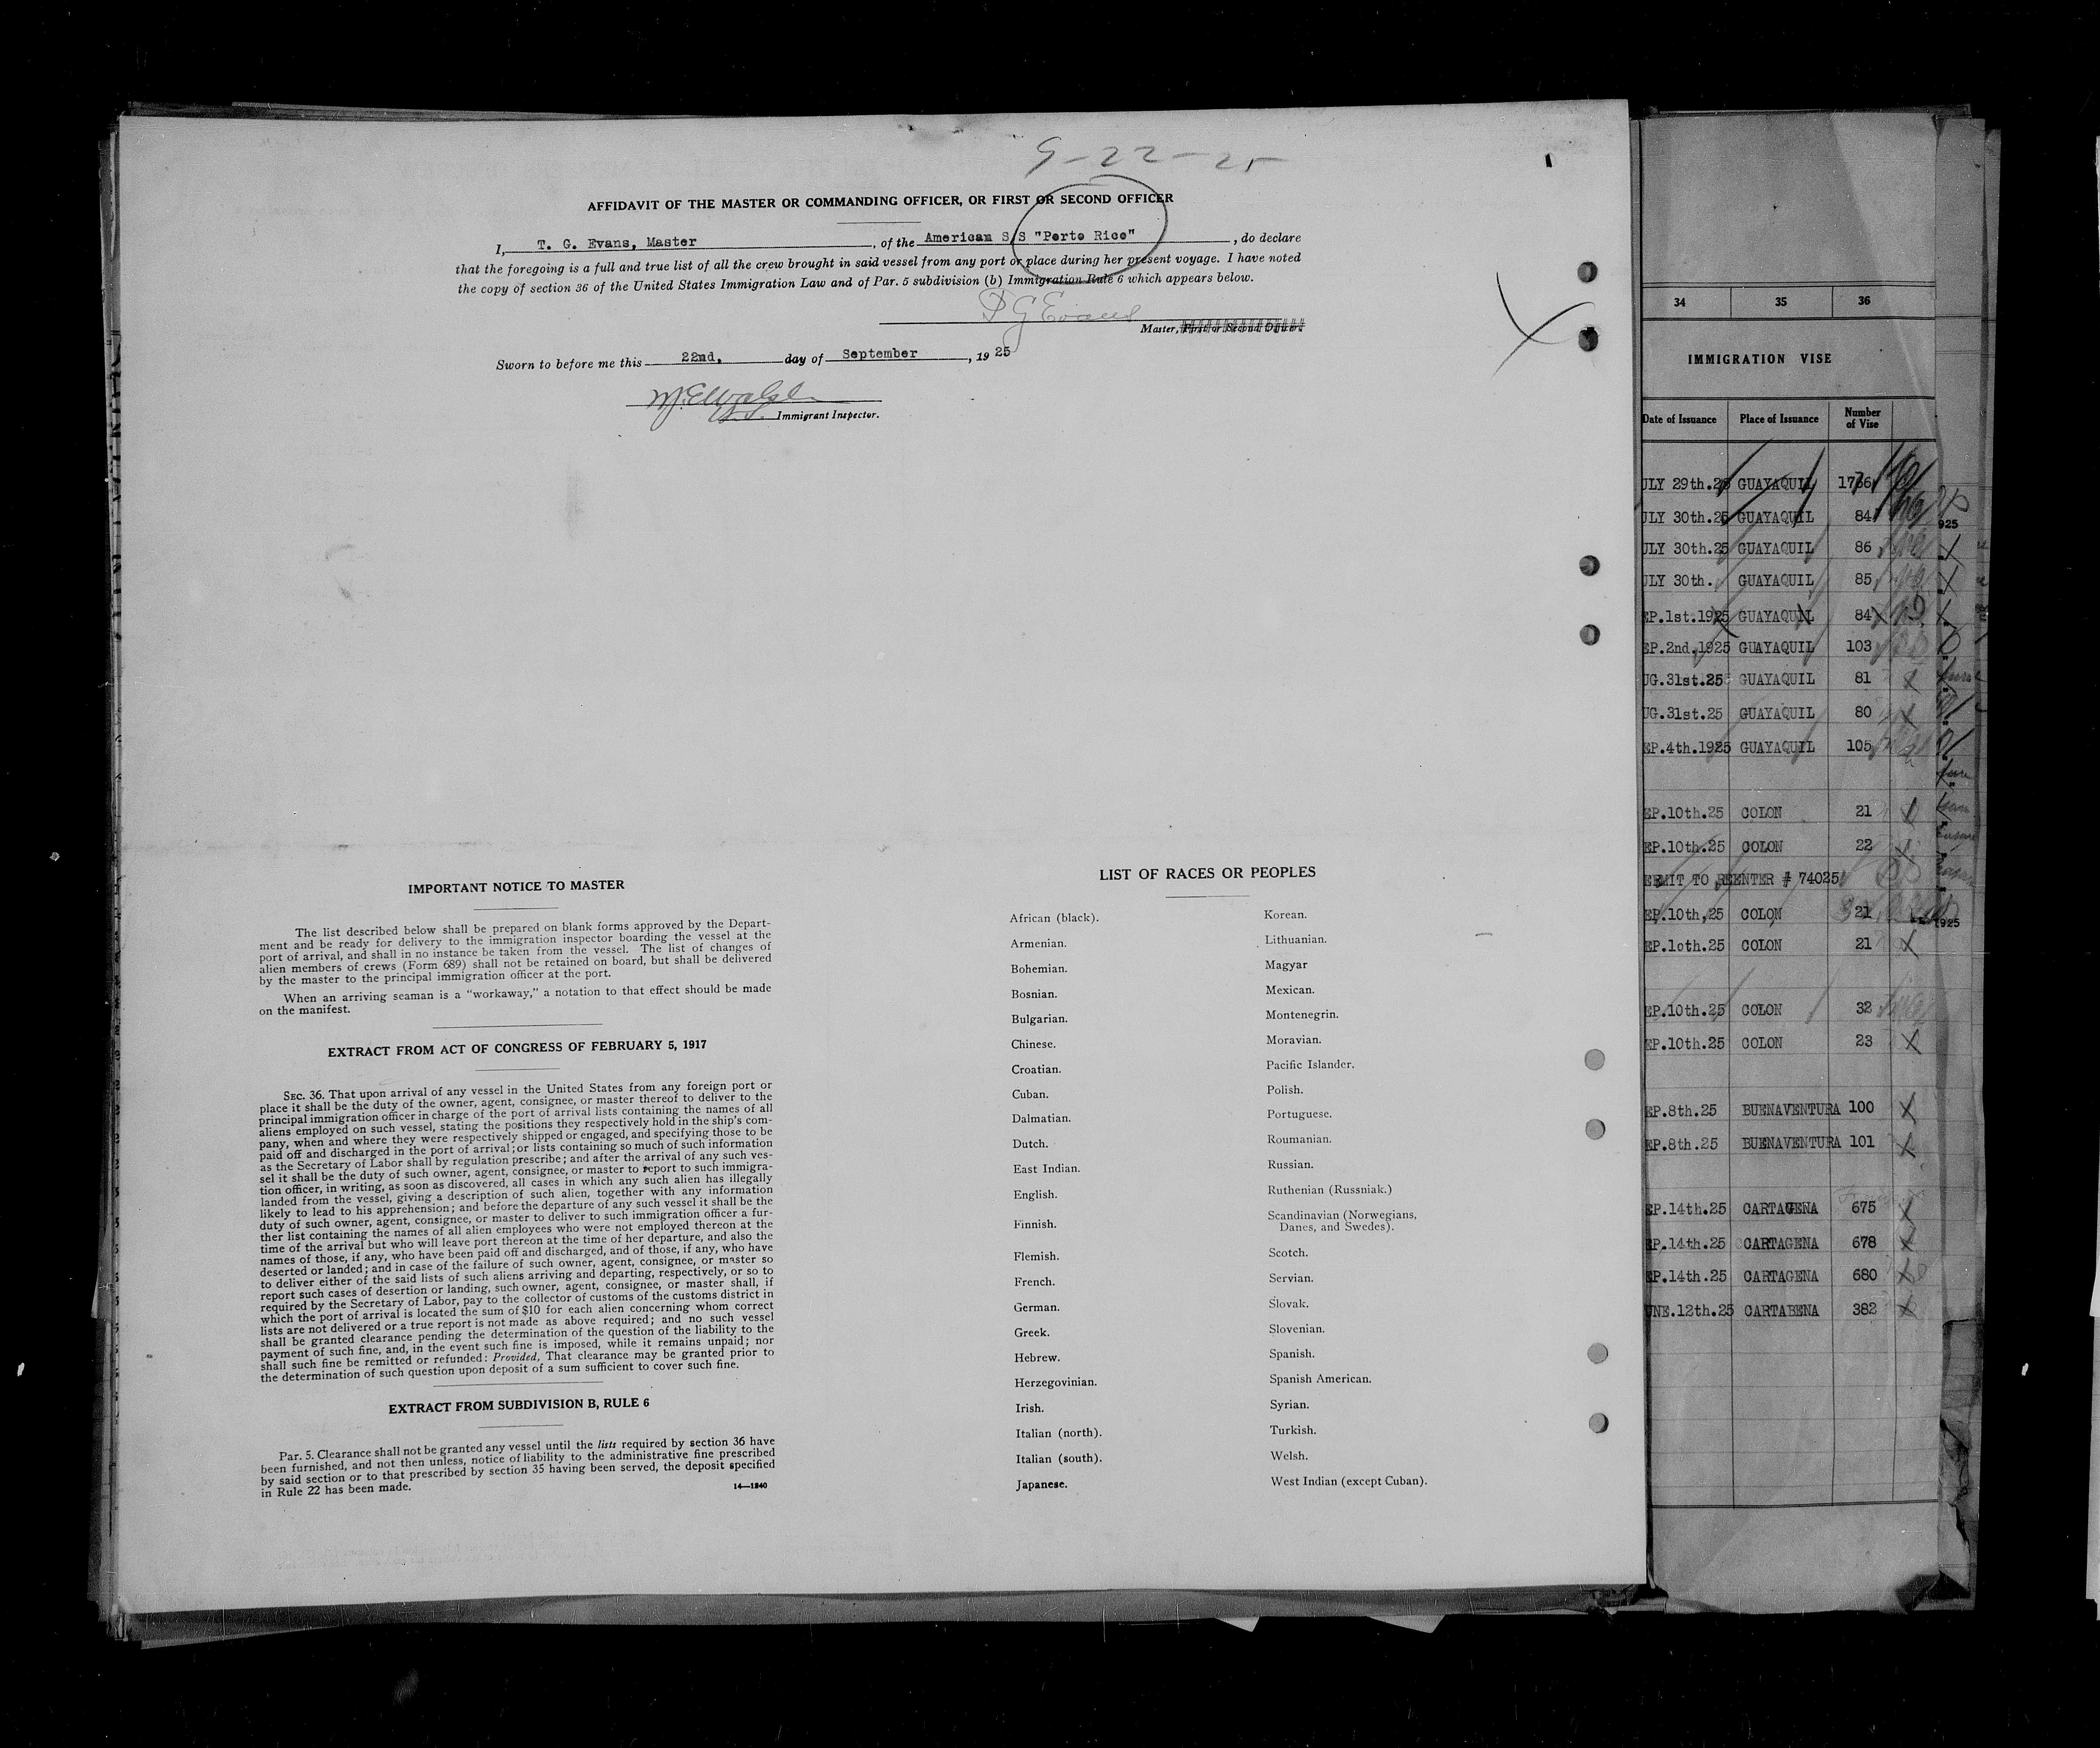 9-22-25
AFFIDAVIT OF THE MASTER OR COMMANDING OFFICER, OR FIRST OR SECOND OFFICER
I, T. G. Evans, Master, of the American S/S "Porto Rico", do declare
that the foregoing is a full and true list of all the crew brought in said vessel from any port or place during her present voyage. I have noted
the copy of section 36 of the United States Immigration Law and of Par. 5 subdivision (b) Immigration Rule 6 which appears below.
T G Evans
Master, First or Second Officer.
Sworn to before me this 22nd, day of September, 1925
Immigrant Inspector.
IMPORTANT NOTICE TO MASTER
The list described below shall be prepared on blank forms approved by the Depart-
ment and be ready for delivery to the immigration inspector boarding the vessel at the
port of arrival, and shall in no instance be taken from the vessel. The list of changes of
alien members of crews (Form 689) shall not be retained on board, but shall be delivered
by the master to the principal immigration officer at the port.
When an arriving seaman is a "workaway," a notation to that effect should be made
on the manifest.
EXTRACT FROM ACT OF CONGRESS OF FEBRUARY 5, 1917
SEC. 36. That upon arrival of any vessel in the United States from any foreign port or
place it shall be the duty of the owner, agent, consignee, or master thereof to deliver to the
principal immigration officer in charge of the port of arrival lists containing the names of all
aliens employed on such vessel, stating the positions they respectively hold in the ship's com-
pany, when and where they were respectively shipped or engaged, and specifying those to be
paid off and discharged in the port of arrival; or lists containing so much of such information
as the Secretary of Labor shall by regulation prescribe; and after the arrival of any such ves-
sel it shall be the duty of such owner, agent, consignee, or master to report to such immigra-
tion officer, in writing, as soon as discovered, all cases in which any such alien has illegally
landed from the vessel, giving a description of such alien, together with any information
likely to lead to his apprehension; and before the departure of any such vessel it shall be the
duty of such owner, agent, consignee, or master to deliver to such immigration officer a fur-
ther list containing the names of all alien employees who were not employed thereon at the
time of the arrival but who will leave port thereon at the time of her departure, and also the
names of those, if any, who have been paid off and discharged, and of those, if any, who have
deserted or landed; and in case of the failure of such owner, agent, consignee, or master so
to deliver either of the said lists of such aliens arriving and departing, respectively, or so to
report such cases of desertion or landing, such owner, agent, consignee, or master shall, if
required by the Secretary of Labor, pay to the collector of customs of the customs district in
which the port of arrival is located the sum of $10 for each alien concerning whom correct
lists are not delivered or a true report is not made as above required; and no such vessel
shall be granted clearance pending the determination of the question of the liability to the
payment of such fine, and, in the event such fine is imposed, while it remains unpaid; nor
shall such fine be remitted or refunded: Provided, That clearance may be granted prior to
the determination of such question upon deposit of a sum sufficient to cover such fine.
EXTRACT FROM SUBDIVISION B, RULE 6
Par. 5. Clearance shall not be granted any vessel until the lists required by section 36 have
been furnished, and not then unless, notice of liability to the administrative fine prescribed
by said section or to that prescribed by section 35 having been served, the deposit specified
in Rule 22 has been made.
14—1240
LIST OF RACES OR PEOPLES
African (black).
Armenian.
Bohemian.
Bosnian.
Bulgarian.
Chinese.
Croatian.
Cuban.
Dalmatian.
Dutch.
East Indian.
English.
Finnish.
Flemish.
French.
German.
Greek.
Hebrew.
Herzegovinian.
Irish.
Italian (north).
Italian (south).
Japanese.
Korean.
Lithuanian.
Magyar
Mexican.
Montenegrin.
Moravian.
Pacific Islander.
Polish.
Portuguese.
Roumanian.
Russian.
Ruthenian (Russniak.)
Scandinavian (Norwegians,
Danes, and Swedes).
Scotch.
Servian.
Slovak.
Slovenian.
Spanish.
Spanish American.
Syrian.
Turkish.
Welsh.
West Indian (except Cuban).
34 35 36
IMMIGRATION VISE
Date of Issuance Place of Issuance Number of Vise
ULY 29th.25 GUAYAQUIL
ULY 30th.25 GUAYAQUIL 84
ULY 30th.25 GUAYAQUIL 86
ULY 30th. GUAYAQUIL 85
EP.1st.1925 GUAYAQUIL 84
EP.2nd.1925 GUAYAQUIL 103
UG.31st.25 GUAYAQUIL 81
UG.31st.25 GUAYAQUIL 80
EP.4th.1925 GUAYAQUIL 105
EP.10th.25 COLON 21
EP.10th.25 COLON 22
ERMIT TO REENTER # 74025
EP.10th,25 COLON 21
EP.10th.25 COLON 21
EP.10th.25 COLON 32
EP.10th.25 COLON 23
EP.8th.25 BUENAVENTURA 100
EP.8th.25 BUENAVENTURA 101
EP.14th.25 CARTAGENA 675
EP.14th.25 CARTAGENA 678
EP.14th.25 CARTAGENA 680
UNE.12th.25 CARTABENA 382
925
1925